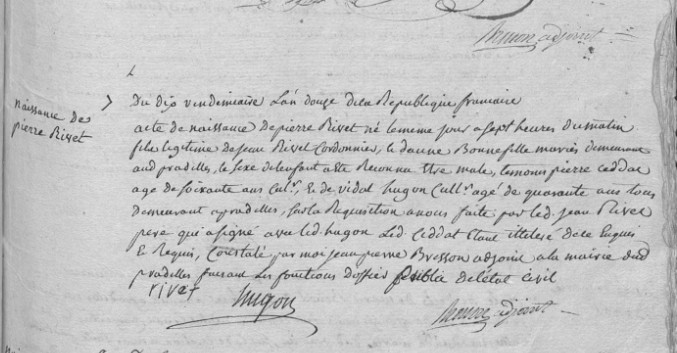 adjoint
naissance de
pierre Rivet
Du dix vendemiaire L'an douze de la Republique francaise
acte de naissance De pierre Rivet né le meme jour a sept heures du matin
fils legitime de jean Rivet Cordonnier, & d'anne Bonnefille mariés demeurant
aud pradelles, le sexe de lenfant a été Reconnu Etre male, temoins pierre Ceddat
age de soixante ans Cult.r, & de vidal hugon Cult.r agé de quarante ans tous
demeurant a pradelles, sur la Requisition a nous faite par led. jean Rivet
pere qui a signé avec led. hugon Led. Ceddat Etant illeteré de ce Enquis
& Requis, Constaté par moi jean pierre Bresson adjoint a la mairie dud
pradelles faisant Les fonctions d'officier publie de l'état Civil
rivet hugon adjoint